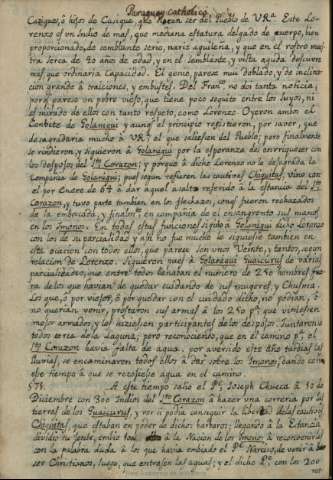 Paraguay Catholico.
Caziques, ó hijos de Cazique, que hacen ser del Pueblo de VRª. Este Lo-
renzo es un Indio de mas, que mediana estatura delgado de cuerpo, bien
proporcionado, de semblante serio, nariz aguileña, y que en el rostro mues-
tra serca de 40 años de edad, y en el semblante, y vista aguda descubre
mas que ordinaria Capacidad. El genio, parece mui doblado, y de inclina-
cion grande á traiciones, y embustes. Del Fran. no doi tanta noticia,
porque parece un pobre viejo, que tiene poco sequito entre los suyos, ni
es mirado de ellos con tanto respeto, como Lorenzo. Oyeron ambos el
Conbite de Golanigui y aunque al principio resistieron, por saver, que
desagradaria mucho á VRª, el que saliessen del Pueblo; pero finalmente
se rindieron, y siguieron á Golanigui por la esperanza de enrriquecer con
los despojos del Sto Corazon; y porque á dicho Lorenzo no le desagrada la
Compañia de Golanigui; pues segun refieren las cautivas Chiquitas, vino con
el por Enero de 64 á dar aquel asalto referido á la estancia del Sto
Corazon, y tuvo parte tambien en los flechazos, con que fueron rechazados
de la emboscada, y finalmte en compañia de el ensangrento sus manos
en los Imonos. En todas estas funciones siguió á Golanigui dicho Lorenzo
con los de su parcialidad, y assi no fue mucho le siguiesse tambien en
esta ocasion con todos ellos, que parece son unos Veinte, y tantos, segun
relacion de Lorenzo. Siguieron pues á Golanigui Guaicurus de varias
parcialidades, que entre todos llenaban el numero de 250 hombres fue-
ra de los que havian de quedar cuidando de sus mugeres, y Chusma.
Los que, ó por viejos, ó por quedar con el cuidado dicho, no podian, ó
no querian venir, prestaron sus armas á los 250 pa. que viniessen
mejor armados, y los hiziessen participantes de los despojos. Juntaronse
todos cerca de la laguna; pero reconociendo, que en el camino pa. el
Sto Corazon havia falta de agua, por averse este año tardado las
lluvias, se encaminaron todos ellos á dar sobre los Imonos, dando con
esto tiempo á que se recogiesse agua en el camino.
§ 78. A este tiempo salio el Pe. Joseph Chueca á 30 de
Diciembre con 300 Indios del Sto Corazon á hazer una correria por las
tierras de los Guaicurus, y ver si podia conseguir la libertad de las cautivas
Chiquitas, que estaban en poder de dichos barbaros; llegando á la Estancia
dividio su gente, embio á la Nacion de los Imonos á reconvenirlos
con la palabra dada á los que havia embiado el Pe. Narciso, de venir á
ser Christianos, luego, que entrassen las aguas; y el dicho Pe. con los 200